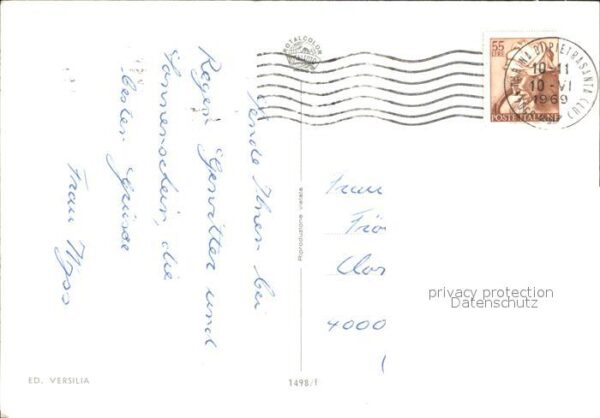 sende Ihnen bei
Regen Gewitter und
Sonnenschein, die
besten Grüsse
Frau Wyss
ROTALCOLOR
55
LIRE
POSTE ITALIANE
MARINA DI PIETRASANTA (LU)
10-11
10-VI
1969
Riproduzione vietata
Frau
Frö
Clar
4000
privacy protection
Datenschutz
ED. VERSILIA
1498/I